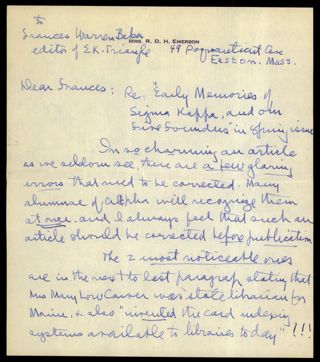 to
Frances Warren Baker
MRS. R. D. H. EMERSON
editor of S.K. Triangle 49 Poquanticut Ave
Easton. Mass.
Dear Frances: Re: "Early Memories of
Sigma Kappa, and our
Five Founders" in Spring issue
In so charming an article
as we seldom see, there are a few glaring
errors that need to be corrected. Many
alumnae of Alpha will recognize them
at once. and I always feel that such an
article should be corrected before publication
The 2 most noticeable ones
are in the next to last paragraph stating that
Mrs Mary Low Carver was "state librarian for
Maine, & also "invented the card indexing
systems available to libraries to day" !!!